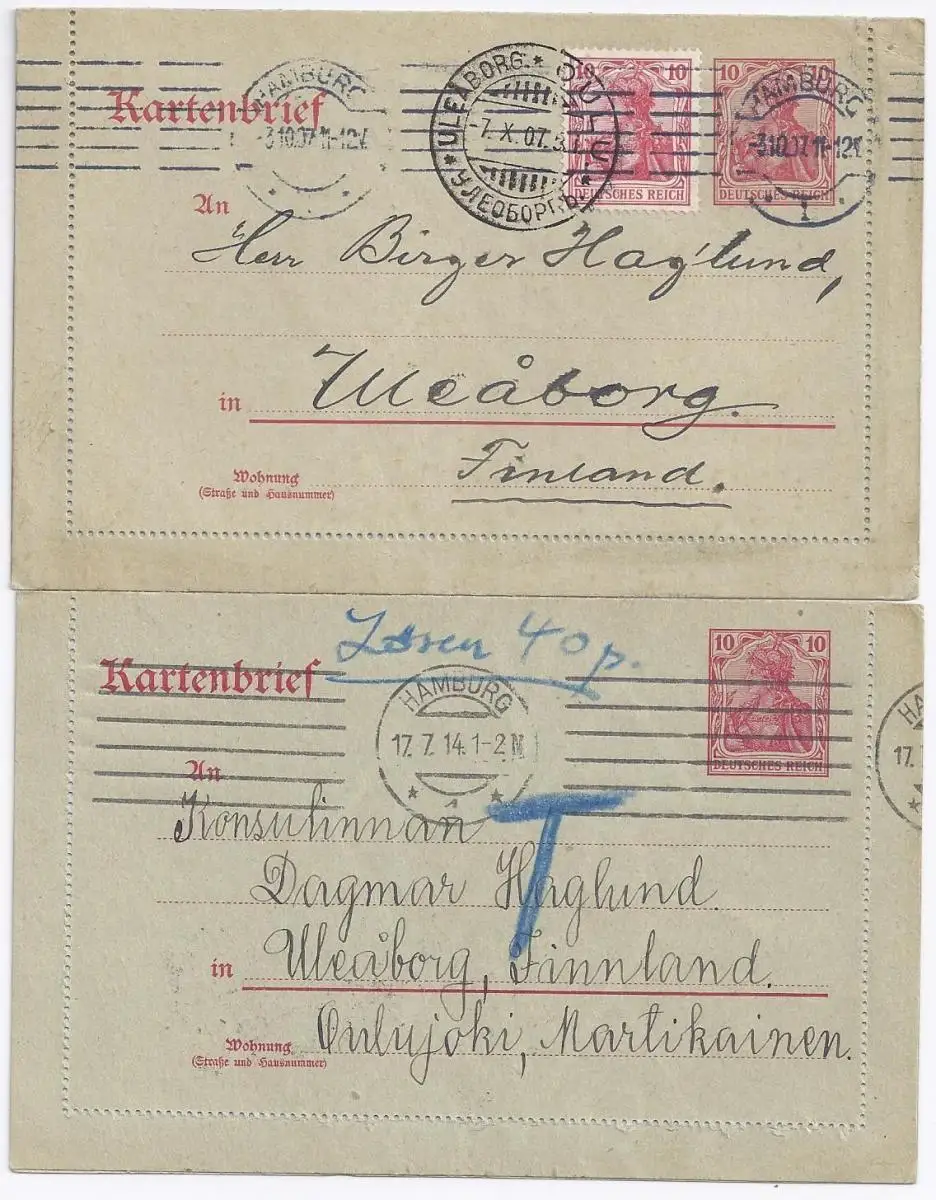 Kartenbrief
HAMBURG
-3.10.07.11-12V.
* ULEÅBORG. * OULU
-7. X. 07.
* УЛЕОБОРГЪ. *
10 10
DEUTSCHES REICH
10 10
DEUTSCHES REICH
HAMBURG
-3.10.07.11-12V.
1
An
Herr Birger Haglund,
in Uleåborg.
Finland.
Wohnung
(Straße und Hausnummer)
40 p.
Kartenbrief
HAMBURG
17.7.14.1-2N
* 1 *
10 10
DEUTSCHES REICH
HA
17.
An
Konsulinnan
T
Dagmar Haglund.
in Uleåborg, Finnland.
Oulujoki, Martikainen.
Wohnung
(Straße und Hausnummer)